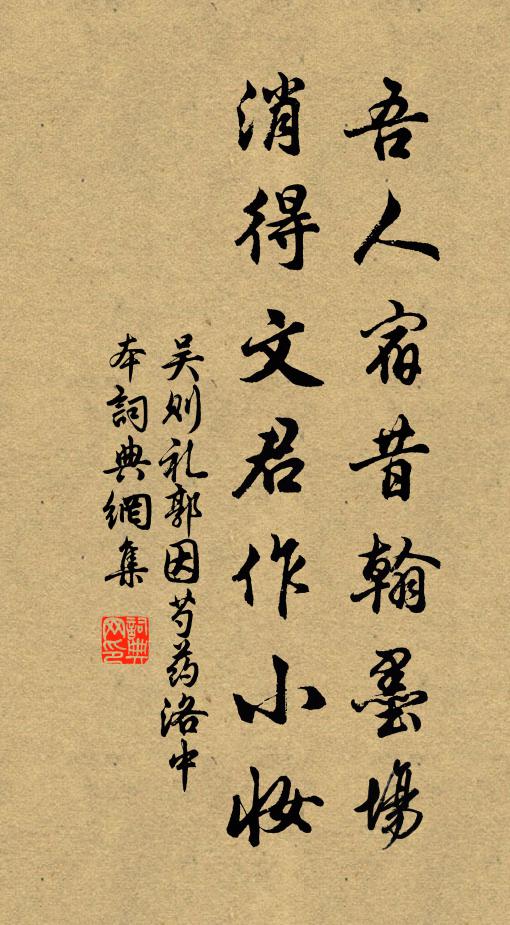 吾人宿昔翰墨場
消得文君作小妝
吴则礼郭因芍药洛中
本詞典網集
詞典网印